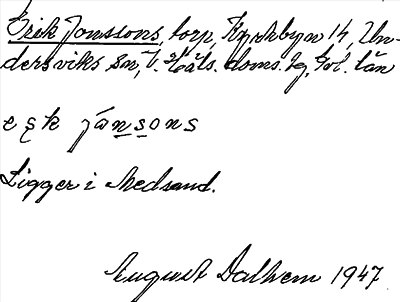 Erik Jonssons, torp, Kyrkbyn 14, Un-
dersviks sn, V. Häls. doms. Ög, Gvl. län
e ȩ k jánsons
Ligger i Medsand.
August Dalhem 1947